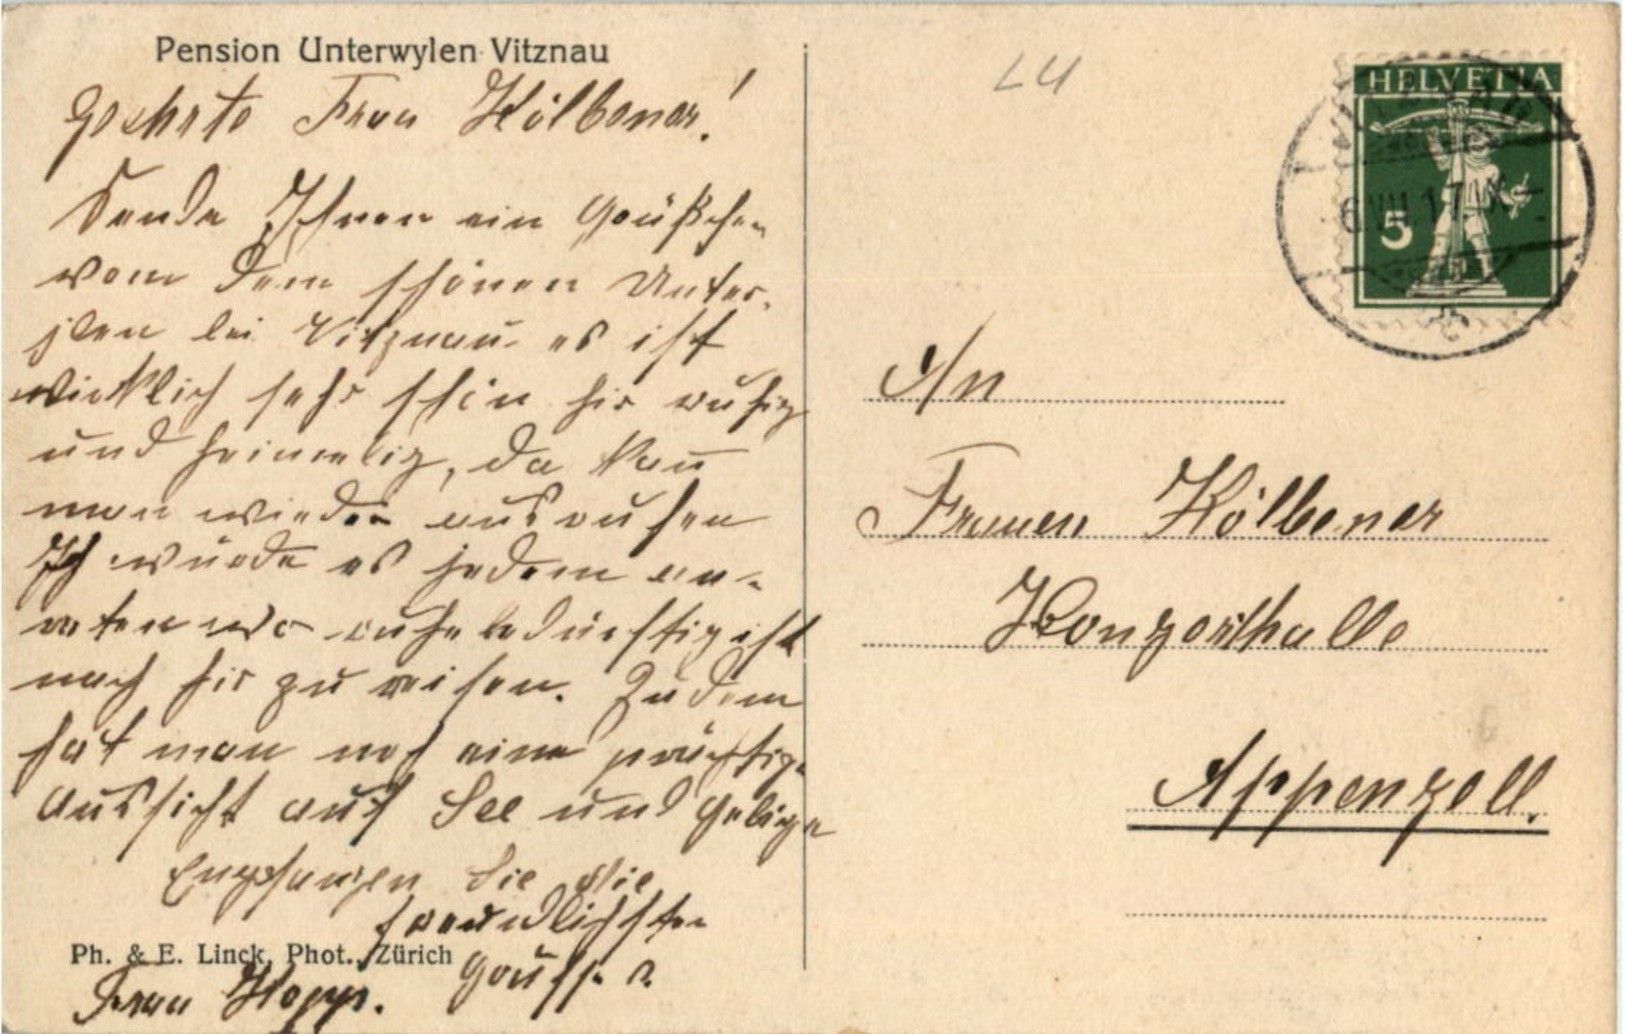 Pension Unterwylen Vitznau
Geehrte Frau Kölbener!
Sende Ihnen ein Grüßchen
vom dem schönen Unter-
ylen bei Vitznau. es ist
wirklich sehr schön hir ruhig
und heimelig, da kan
man wieder ausruhen
Ich würde es jedem an-
raten wo ruhebedürftig ist
nach hir zu reisen. Zudem
hat man noch eine prächtige
Aussicht auf See und Gebirge
Empfangen Sie die
freundlichsten
Grüsse v.
Frau Hopp.
Ph. & E. Linck, Phot., Zürich
LU
HELVETIA
5
6 VIII 17
An
Frauen Kölbener
Konzerthalle
Appenzell.